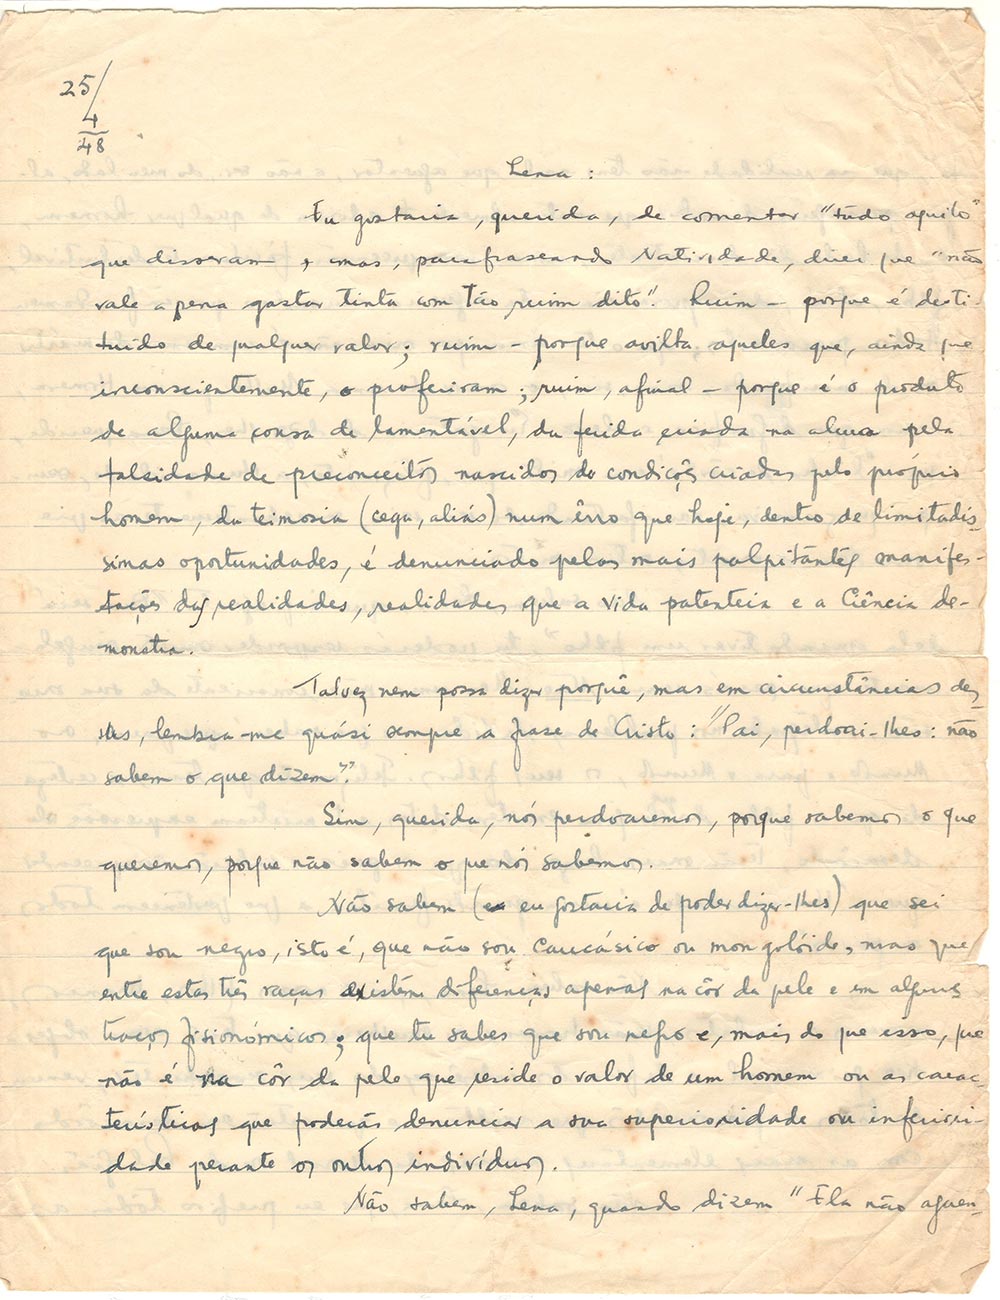 25/
4
48
Lena :
Eu gostaria, querida, de comentar "tudo aquilo"
que disseram, mas, parafraseando Natividade, direi que "não
vale a pena gastar tinta com tão ruim dito". Ruim - porque é desti-
tuido de qualquer valor; ruim - porque avilta aqueles que, ainda que
inconscientemente, o proferiram; ruim, afinal - porque é o produto
de alguma cousa de lamentável, da ferida criada na alma pela
falsidade de preconceitos nascidos de condições criadas pelo próprio
homem, da teimosia (cega, aliás) num êrro que hoje, dentro de limitadis-
simas oportunidades, é denunciado pelas mais palpitantes manifes-
tações das realidades, realidades que a vida patenteia e a Ciência de-
monstra.
Talvez nem possa dizer porquê, mas em circunstâncias des-
tas, lembra-me quási sempre a frase de Cristo: "Pai, perdoai-lhes: não
sabem o que dizem".
Sim, querida, nós perdoaremos, porque sabemos o que
queremos, porque não sabem o que nós sabemos.
Não sabem (e eu gostaria de poder dizer-lhes) que sei
que sou negro, isto é, que não sou Caucásico ou mongolóide, mas que
entre estas três raças existem diferenças apenas na côr da pele e em alguns
traços fisionómicos; que tu sabes que sou negro e, mais do que isso, que
não é na côr da pele que reside o valor de um homem ou as carac-
terísticas que poderão denunciar a sua superioridade ou inferiori-
dade perante os outros indivíduos.
Não sabem, Lena, quando dizem "Ela não aguen-